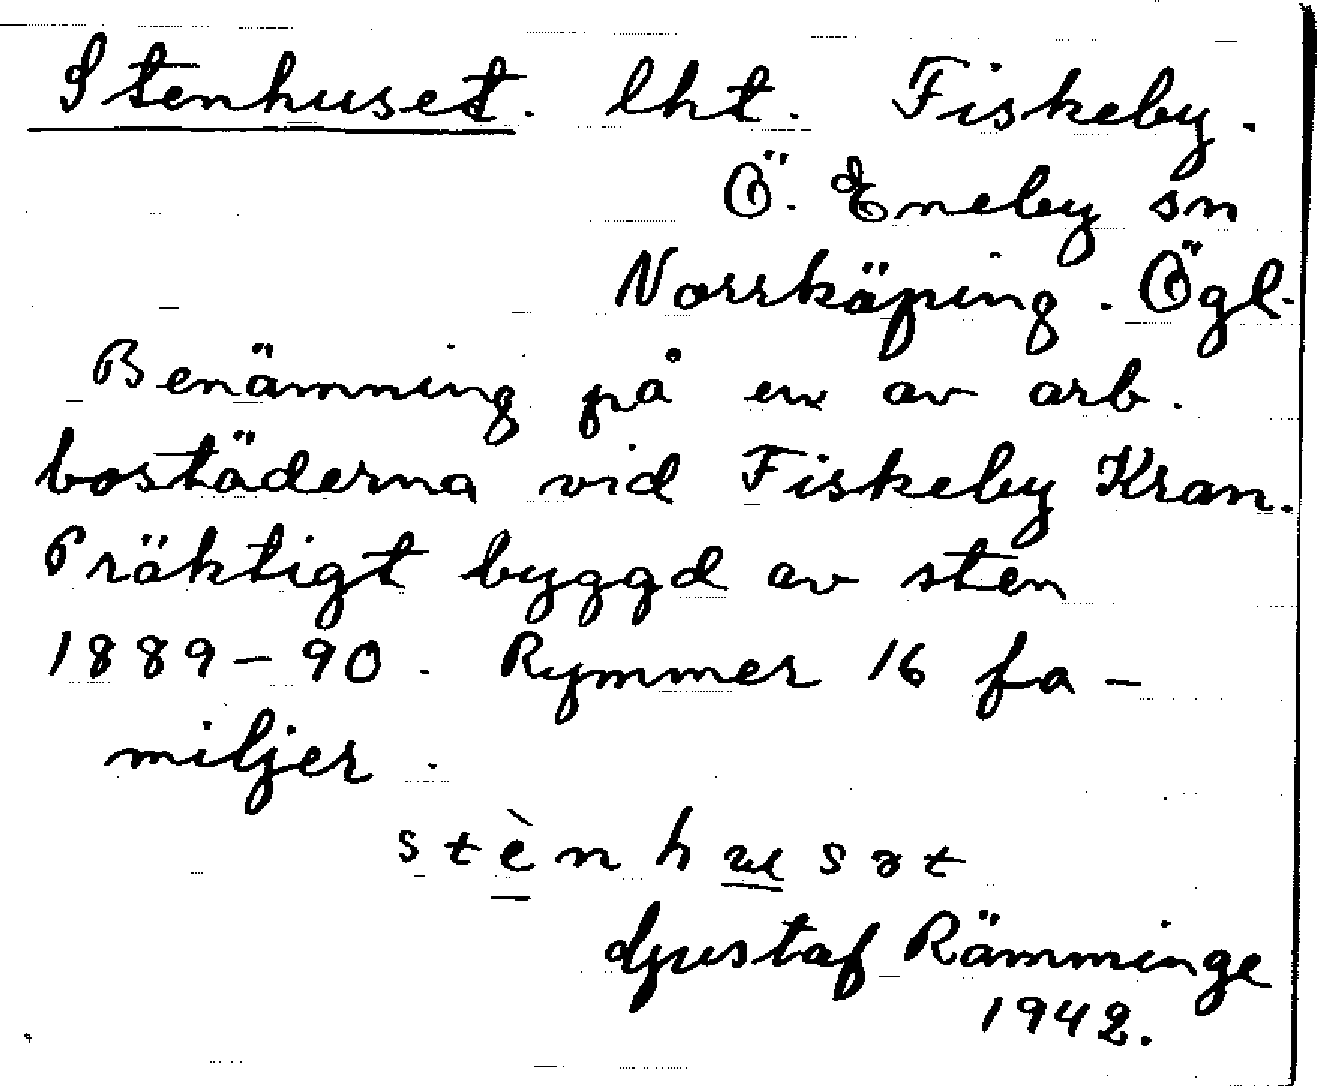 Stenhuset. lht. Fiskeby.
Ö. Eneby sn
Norrköping. Ögl.
Benämning på en av arb.
bostäderna vid Fiskeby Kran.
Präktigt byggd av sten
1889-90. Rymmer 16 fa-
miljer.
stènhusət
Gustaf Rämminge
1942.